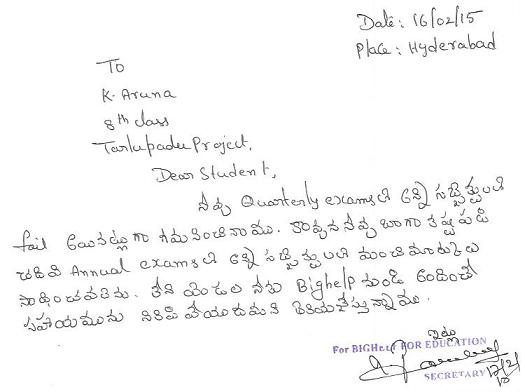 Date: 16/02/15
Place: Hyderabad
To
K. Aruna
8th class
Tarlupadu Project,
Dear Student,
నీవు Quarterly examsలో అన్ని సబ్జెక్టులలో
fail అయినట్లుగా గమనించినాము. కావున నీవు బాగా కష్టపడి
చదివి Annual examsలో అన్ని సబ్జెక్టులలో మంచి మార్కులు
సాధించవలెను. లేని యెడల నీకు Bighelp నుండి అందించే
సహాయమును నిలిపి వేయుదుమని తెలియచేస్తున్నాము.
ఇట్లు
For BIGHELP FOR EDUCATION
SECRETARY